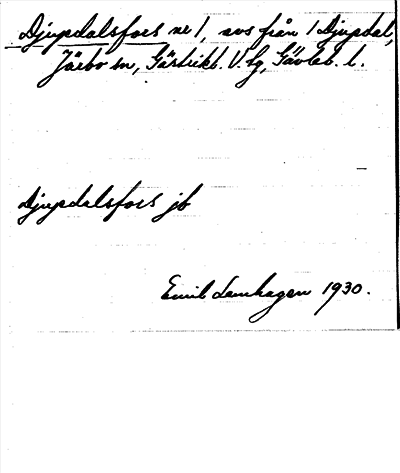 Djupdalsfors nr 1, avs från 1 Djupdal,
Järbo sn, Gästrikl. V. tg, Gävleb. l.
Djupdalsfors jb
Emil Lemhagen 1930.